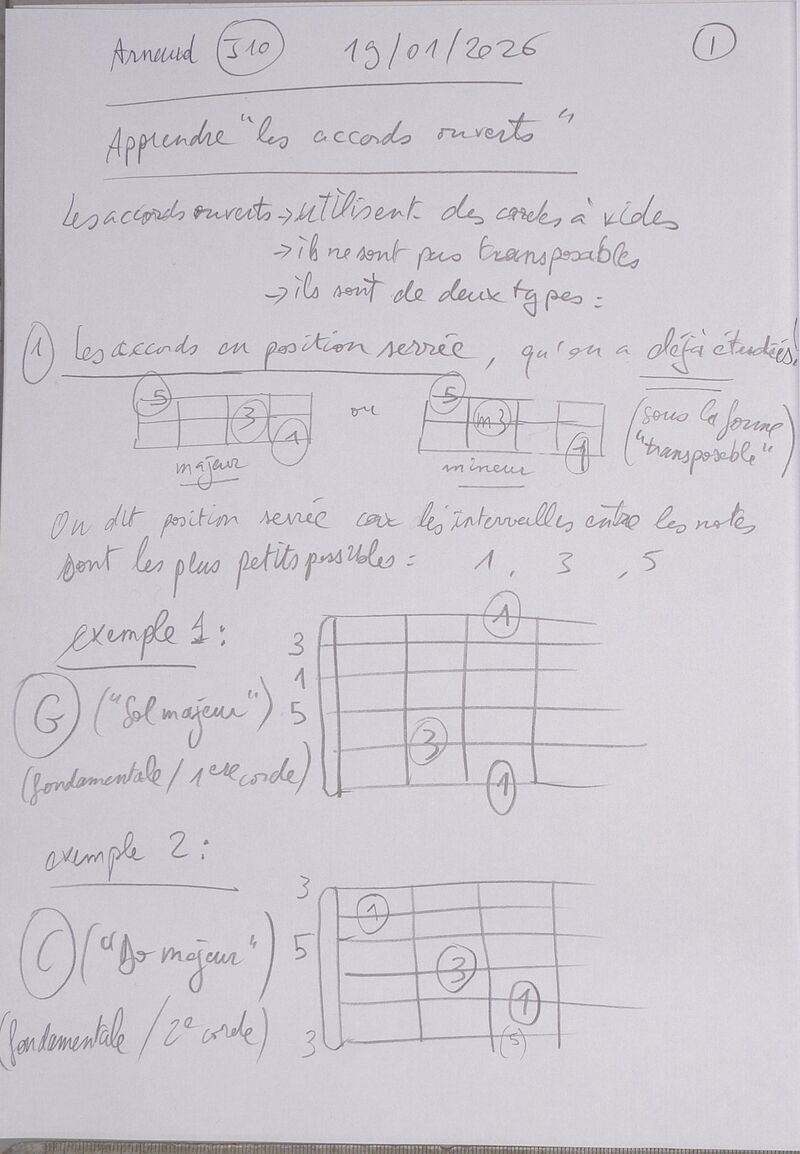 Arnaud J10 19/01/2026 1
Apprendre "les accords ouverts"
Les accords ouverts → utilisent des cordes à vides
→ ils ne sont pas transposables
→ ils sont de deux types :
1 Les accords en position serrée, qu'on a déjà étudiés!
5 3 1 ou 5 m3 1 (sous la forme
majeur mineur "transposable")
On dit position serrée car les intervalles entre les notes
sont les plus petits possibles : 1, 3, 5
exemple 1 :
1
3
1
G ("Sol majeur") 5
3
(fondamentale / 1ere corde) 1
exemple 2 :
3
1
C ("Do majeur") 5
3
1
(fondamentale / 2e corde) 3 (5)